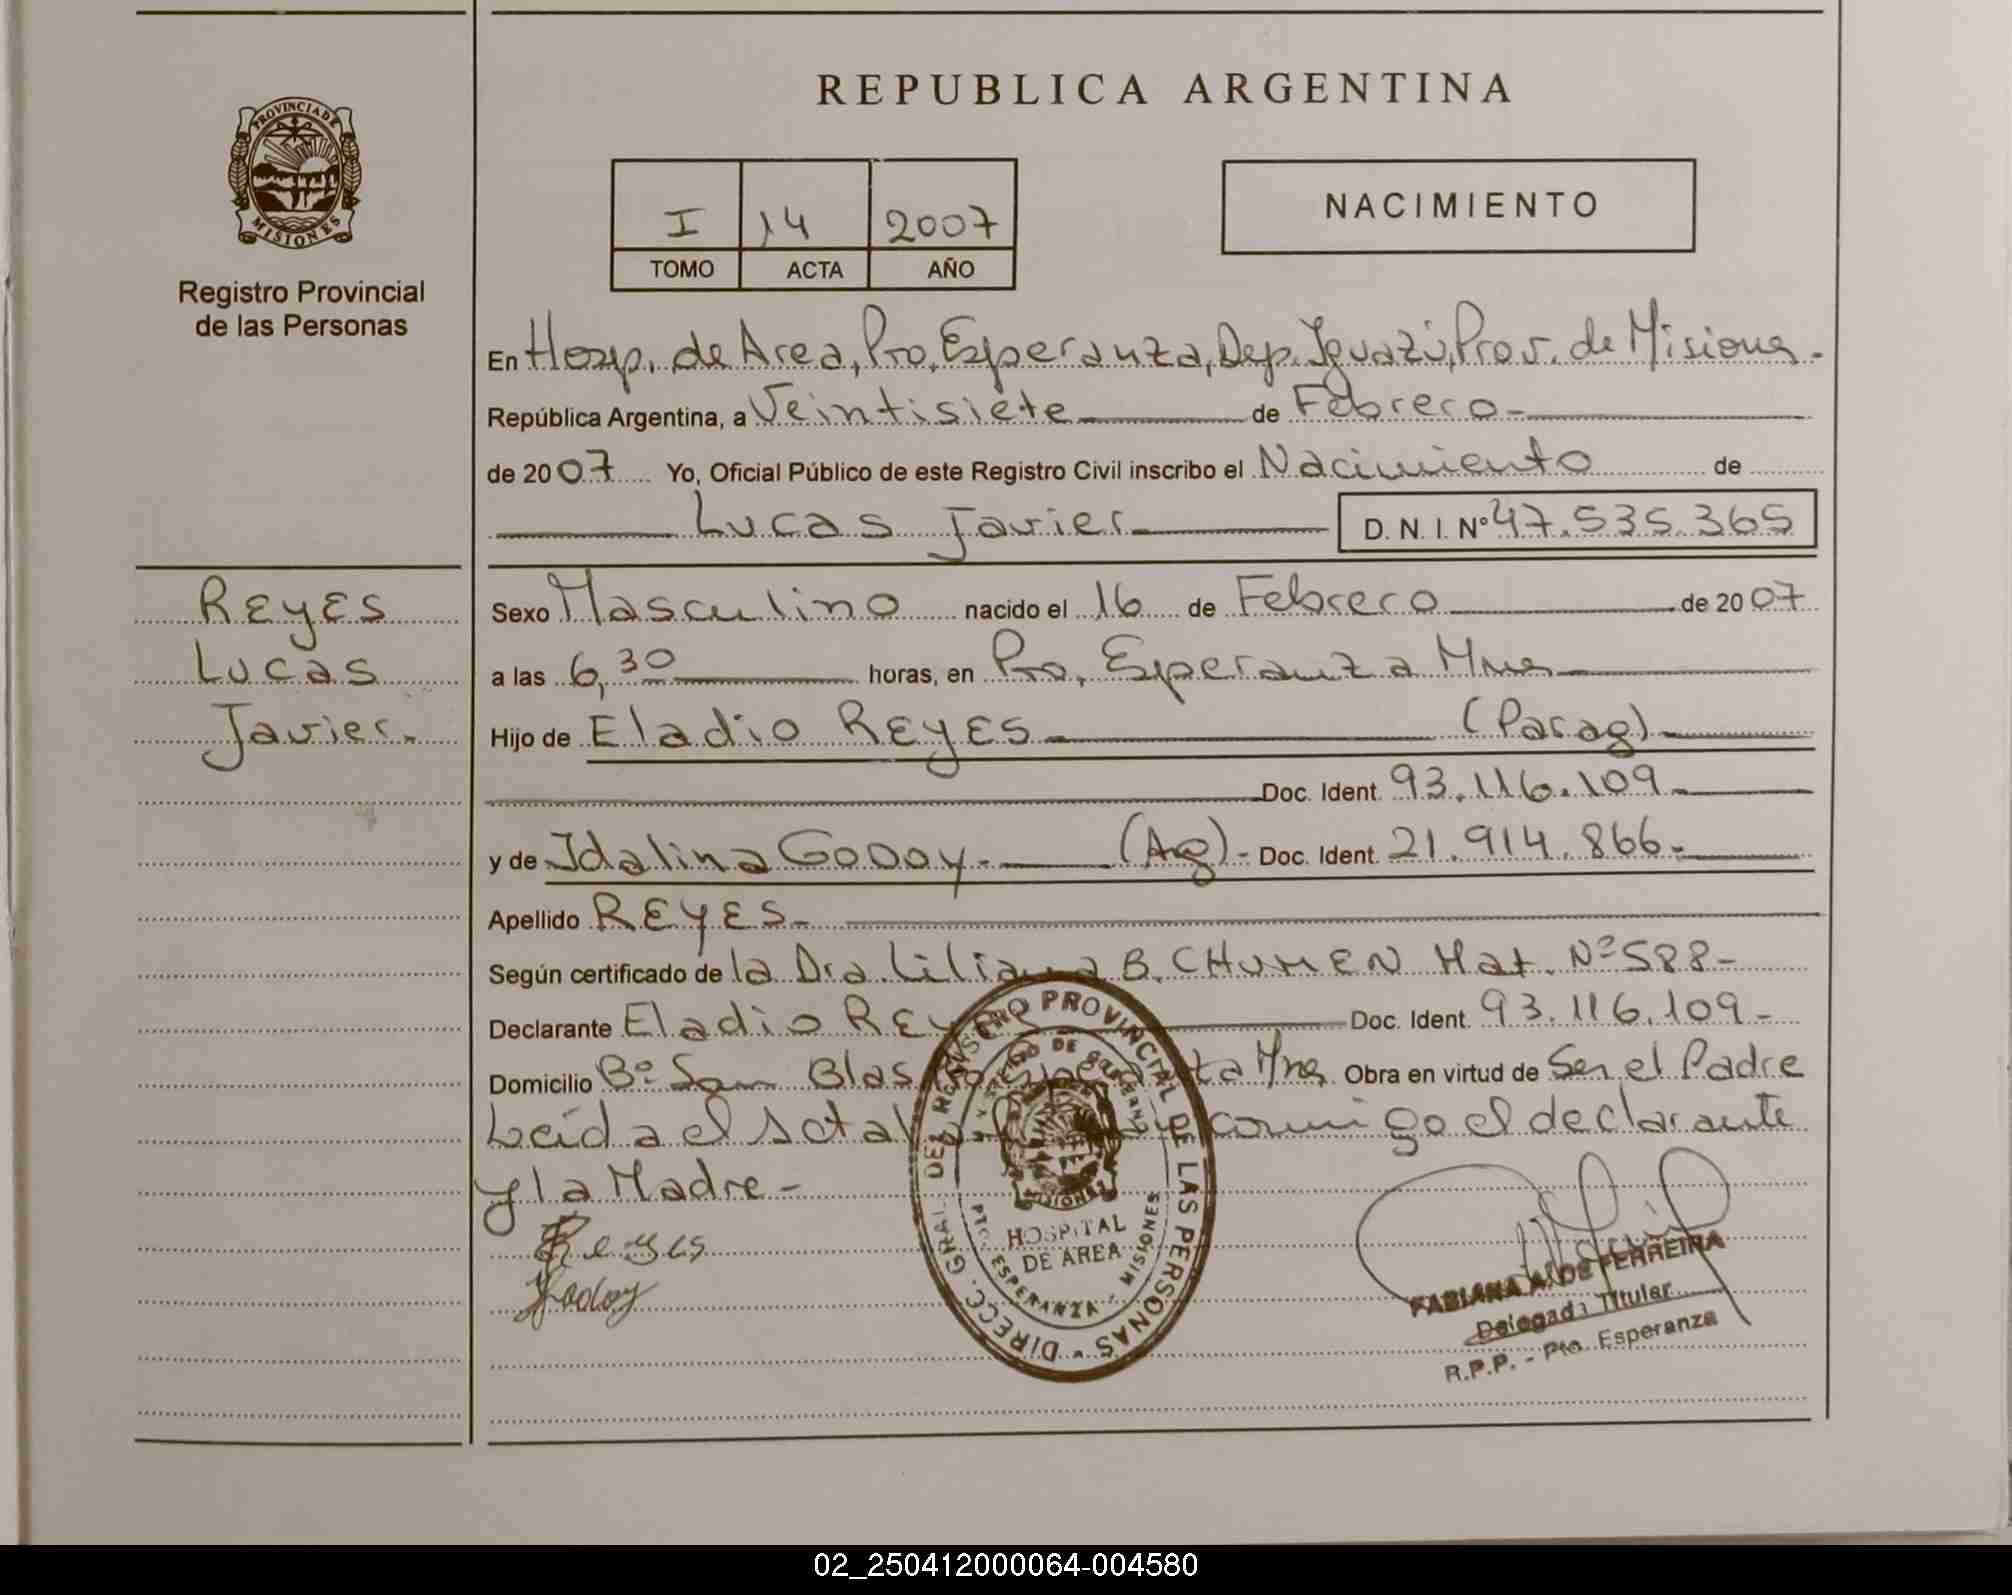 REPUBLICA ARGENTINA
PROVINCIA DE
MISIONES
Registro Provincial
de las Personas
I 14 2007
TOMO ACTA AÑO
NACIMIENTO
En Hosp. de Area, Pto. Esperanza, Dep. Iguazú, Prov. de Misiones.
República Argentina, a Veintisiete de Febrero
de 2007 Yo, Oficial Público de este Registro Civil inscribo el Nacimiento de
Lucas Javier D. N. I. Nº 47.535.365
Reyes
Lucas
Javier.
Sexo Masculino nacido el 16 de Febrero de 2007
a las 6,30 horas, en Pto. Esperanza Mnes
Hijo de Eladio REYES (Parag)
Doc. Ident. 93.116.109
y de Idalina GODOY. (Ag) - Doc. Ident. 21.914.866.
Apellido REYES
Según certificado de la Dra Liliana B. CHUMEN Mat. Nº 588-
Declarante Eladio REYES Doc. Ident. 93.116.109-
Domicilio Bº San Blas Mnes Obra en virtud de Ser el Padre
Leida el Acta conmigo el declarante
y la Madre-
Reyes
Godoy
DIRECC. GRAL. DEL REGISTRO PROVINCIAL DE LAS PERSONAS
MISIONES
HOSPITAL
DE AREA
PTO. ESPERANZA - MISIONES
FABIANA A. DE FERREIRA
Delegada Titular
R.P.P. - Pto. Esperanza
02_250412000064-004580